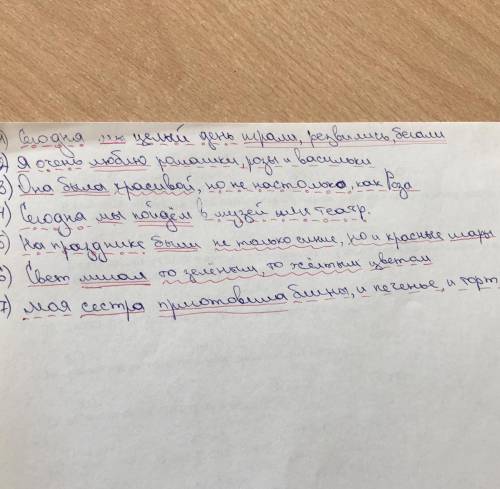 1) Сегодня мы целый день играли, резвились, бегали
2) Я очень люблю ромашки, розы и васильки
3) Она была красивой, но не настолько, как Роза
4) Сегодня мы пойдём в музей или театр.
5) На празднике были не только синие, но и красные шары
6) Свет мигал то зелёным, то жёлтым цветом
7) моя сестра приготовила блины, и печенье, и торт